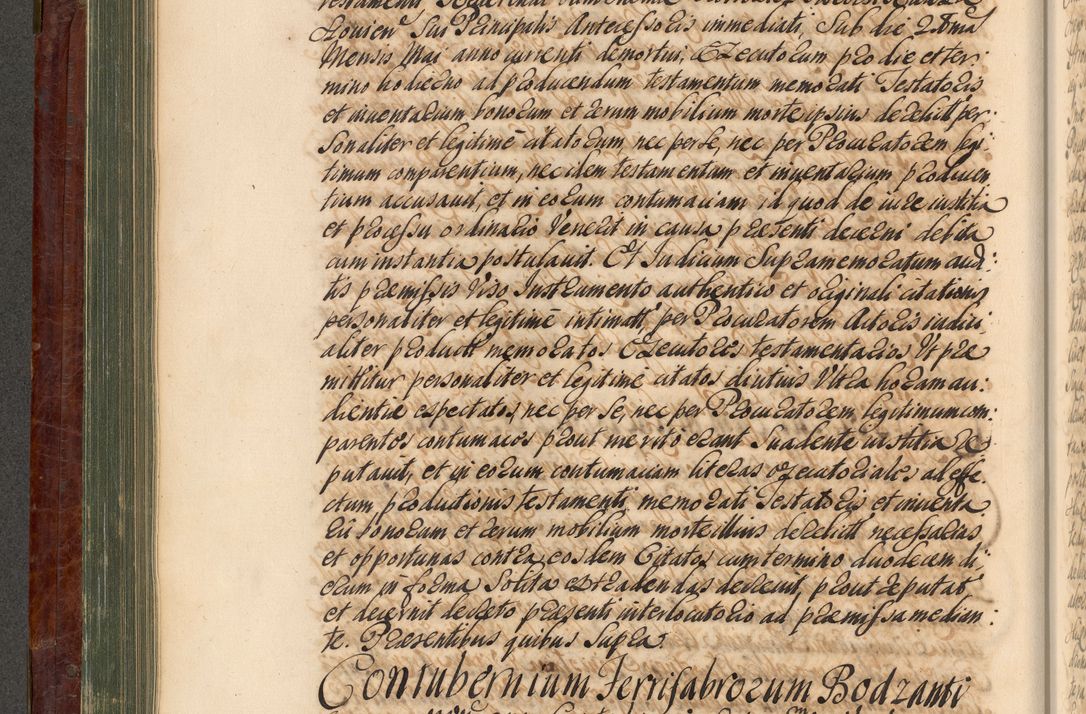 Lovicen Sui Principalis Antecessoris immediati, Sub die 2dma
Mensis Mai anno currenti demortui, Executorum pro die et ter-
mino hodierno ad producendum testamentum memorati Testatoris
et inventarium bonorum et rerum mobilium morte ipsius derelict per-
sonaliter et legitime citatorum, nec per se, nec per Procuratorem legi
timum comparentium, nec idem testamentum et inventarium producen
tium accusavit, et in eorum contumaciam id quod de iure iustitia
et processu ordinario Venerit in causa praesenti decerni debita
cum instantia postulavit. Et Iudicium Supra memoratum audi:
tis praemissis Viso Instrumento authentico et originali citationis
personaliter et legitime intimatt, per Procuratorem Actoris iudici
aliter product memoratos Executores testamentarios Ut prae
mittitur personaliter et legitime citatos diutius Ultra horam au:
dientiae expectatos, nec per se, nec per Procuratorem, legitimum com:
parentes contumaces prout merito erant Suadente iustitia re
putavit, et in eorum contumaciam literas executoriales ad effe
ctum productionis testamenti memorati Testatoris et inventa
rii bonorum et rerum mobilium morte illius derelictt necessarias
et opportunas contra eosdem Citatos cum termino duodecim di:
erum in forma Solita extradendas decrevit, prout reputat
et decernit decreto praesenti interlocutorio ad praemissa median:
te. Praesentibus quibus Supra.
Contubernium Ferrifabrorum Bodzanti